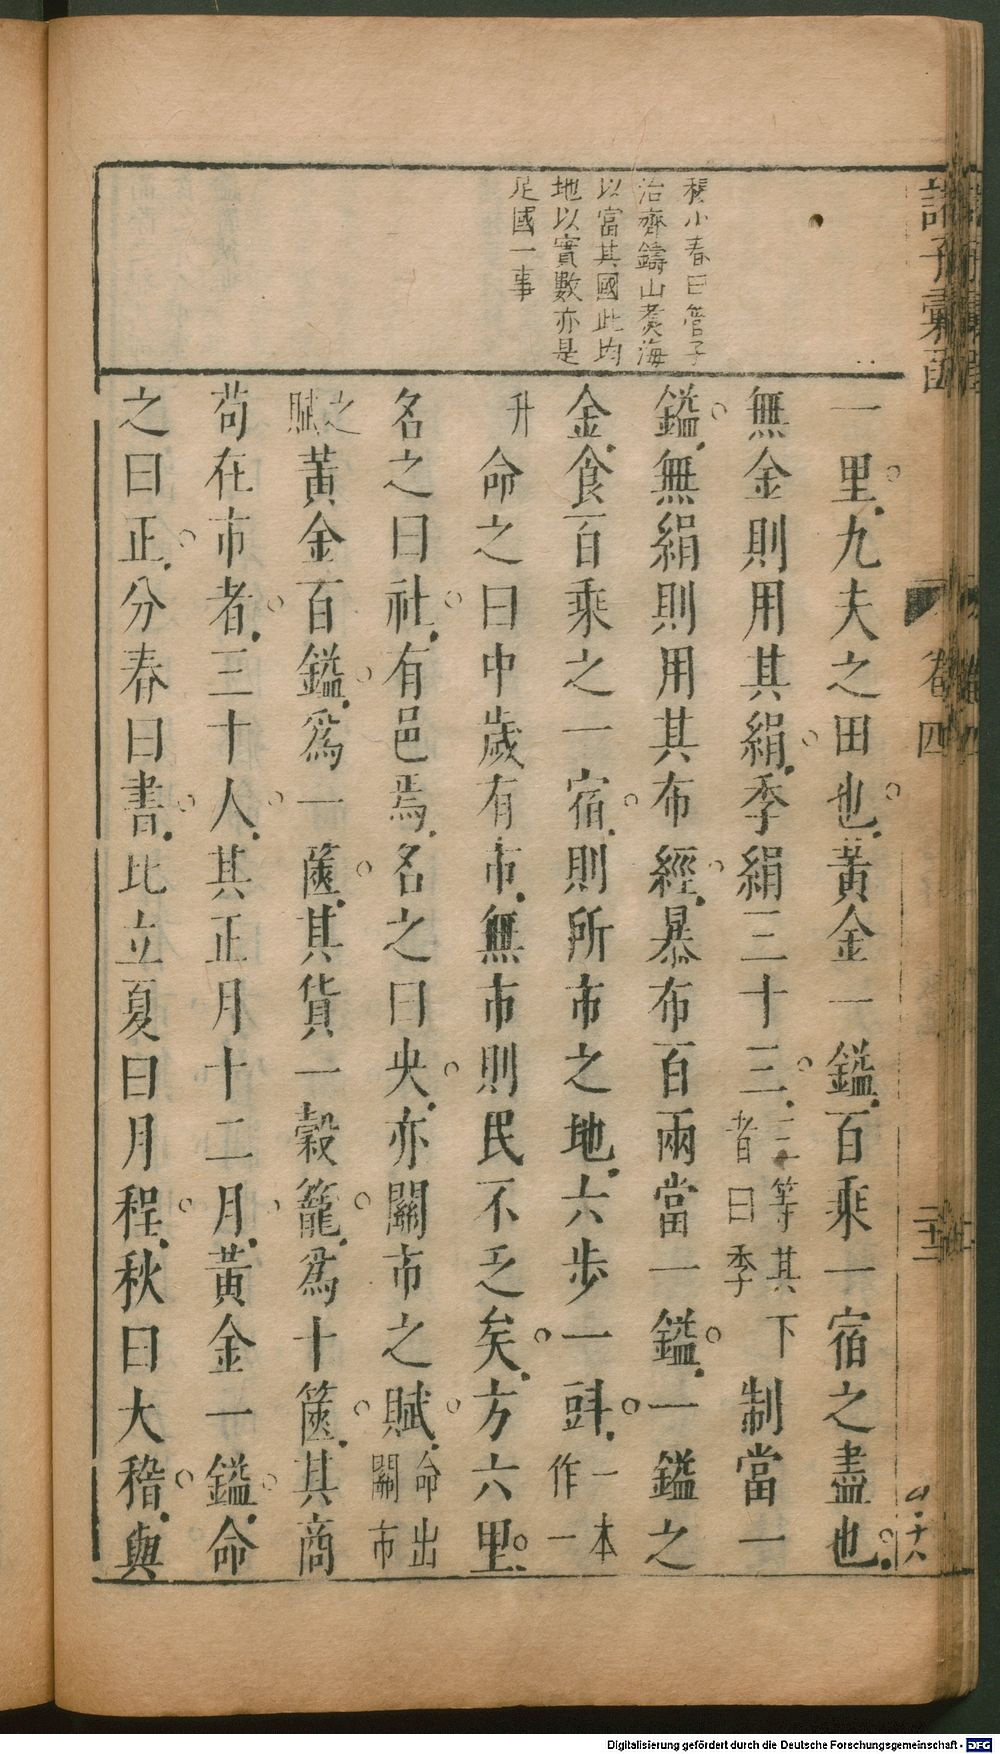 諸子彙函
卷四
二十二
四十六
楊小春曰管子
治齊鑄山煑海
以富其國此均
地以實數亦是
足國一事
一里九夫之田也黃金一鎰百乘一宿之盡也
無金則用其絹季絹三十三三等其下者曰季制當一
鎰無絹則用其布經暴布百兩當一鎰一鎰之
金食百乘之一宿則所市之地六步一㪷一本作一
升命之曰中歲有市無市則民不乏矣方六里
名之曰社有邑焉名之曰央亦關市之賦命出關市
之賦黃金百鎰爲一篋其貨一穀籠爲十篋其商
苟在市者三十人其正月十二月黃金一鎰命
之曰正分春曰書比立夏曰月程秋曰大稽與
Digitalisierung gefördert durch die Deutsche Forschungsgemeinschaft - DFG